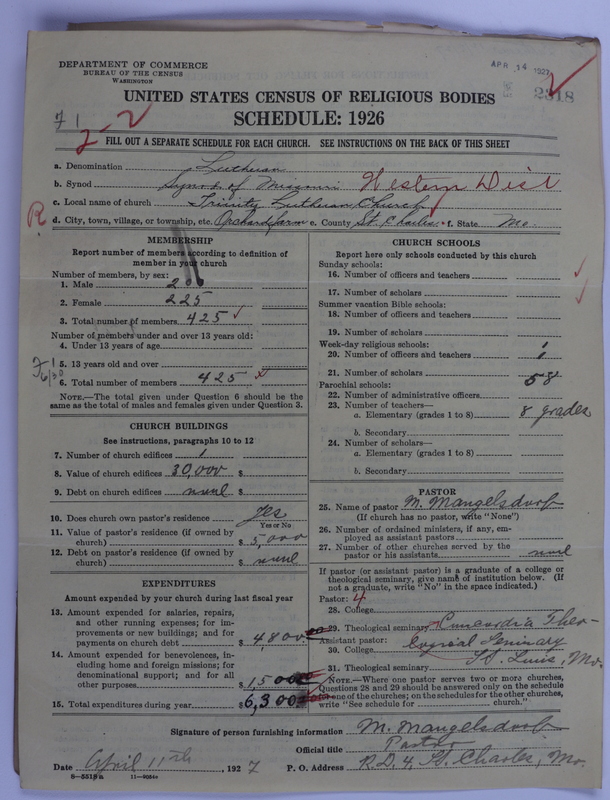 DEPARTMENT OF COMMERCE
BUREAU OF THE CENSUS
WASHINGTON
APR 14 1927
2318
UNITED STATES CENSUS OF RELIGIOUS BODIES
SCHEDULE: 1926
2-2
FILL OUT A SEPARATE SCHEDULE FOR EACH CHURCH. SEE INSTRUCTIONS ON THE BACK OF THIS SHEET
a. Denomination Lutheran
b. Synod Synod of Missouri Western Dist
c. Local name of church Trinity Lutheran Church
R
d. City, town, village, or township, etc. Orchardfarm e. County St. Charles f. State Mo.
MEMBERSHIP
Report number of members according to definition of member in your church
Number of members, by sex:
1. Male 200
2. Female 225
3. Total number of members 425
Number of members under and over 13 years old:
4. Under 13 years of age
5. 13 years old and over
6. Total number of members 425
NOTE.—The total given under Question 6 should be
same as the total of males and females given under Question 3.
CHURCH BUILDINGS
See instructions, paragraphs 10 to 12
7. Number of church edifices 1
8. Value of church edifices 30,000 $
9. Debt on church edifices none $
10. Does church own pastor's residence Yes
Yes or No
11. Value of pastor's residence (if owned by
church) $ 5,000
12. Debt on pastor's residence (if owned by
church) $ none
EXPENDITURES
Amount expended by your church during last fiscal year
13. Amount expended for salaries, repairs,
and other running expenses; for im-
provements or new buildings; and for
payments on church debt $ 4,800
14. Amount expended for benevolences, in-
cluding home and foreign missions; for
denominational support; and for all
other purposes $ 1500
15. Total expenditures during year $ 6,300
CHURCH SCHOOLS
Report here only schools conducted by this church
Sunday schools:
16. Number of officers and teachers
17. Number of scholars
Summer vacation Bible schools:
18. Number of officers and teachers
19. Number of scholars
Week-day religious schools:
20. Number of officers and teachers 1
21. Number of scholars 58
Parochial schools:
22. Number of administrative officers
23. Number of teachers—
a. Elementary (grades 1 to 8) 8 grades
b. Secondary
24. Number of scholars—
a. Elementary (grades 1 to 8)
b. Secondary
PASTOR
25. Name of pastor M. Mangelsdorf
(If church has no pastor, write "None")
26. Number of ordained ministers, if any, em-
ployed as assistant pastors
27. Number of other churches served by the
pastor or his assistants none
If pastor (or assistant pastor) is a graduate of a college or
theological seminary, give name of institution below. (If
not a graduate, write "No" in the space indicated.)
Pastor: 4
28. College
29. Theological seminary Concordia Theo-
Assistant pastor:
30. College logical Seminary
31. Theological seminary St. Louis, Mo.
NOTE.—Where one pastor serves two or more churches,
Questions 28 and 29 should be answered only on the schedule
for one of the churches; on the schedules for the other churches,
write "See schedule for church."
Signature of person furnishing information M. Mangelsdorf
Official title Pastor
Date April 11th, 1927 P. O. Address R.D. 4, St. Charles, Mo.
8—5518a 11—9084